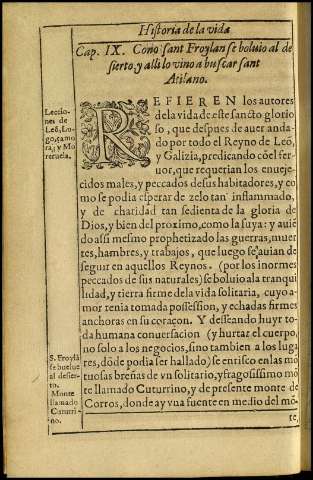 Historia de la vida
Cap. IX. Como sant Froylan se boluio al de
sierto, y alli lo vino a buscar sant
Atilano.
Leccio-
nes de
Leõ, Lu-
go, çamo
ra, y Mo
reruela.
REFIEREN los autores
de la vida de este sancto glorio
so, que despues de auer anda-
do por todo el Reyno de Leõ,
y Galizia, predicando cõ el fer
uor, que requerian los enueje-
cidos males, y peccados de sus habitadores, y co
mo se podia esperar de zelo tan inflammado,
y de charidad tan sedienta de la gloria de
Dios, y bien del proximo, como la suya: y auiẽ
do assi mesmo prophetizado las guerras, muer
tes, hambres, y trabajos, que luego se auian de
seguir en aquellos Reynos. (por los inormes
peccados de sus naturales) se boluio a la tranqui
lidad, y tierra firme de la vida solitaria, cuyo a-
mor tenia tomada possession, y echadas firmes
anchoras en su coraçon. Y desseando huyr to-
da humana conuersacion (y hurtar el cuerpo,
no solo a los negocios, sino tambien a los luga
res, dõde podia ser hallado) se entrisco en las mõ
tuosas breñas de vn solitario, y fragosissimo mõ
te llamado Cuturrino, y de presente monte de
Corros, donde ay vna fuente en medio del mõ-
te,
S. Froylã
se buelue
al desier-
to.
Monte
llamado
Caturri-
no.